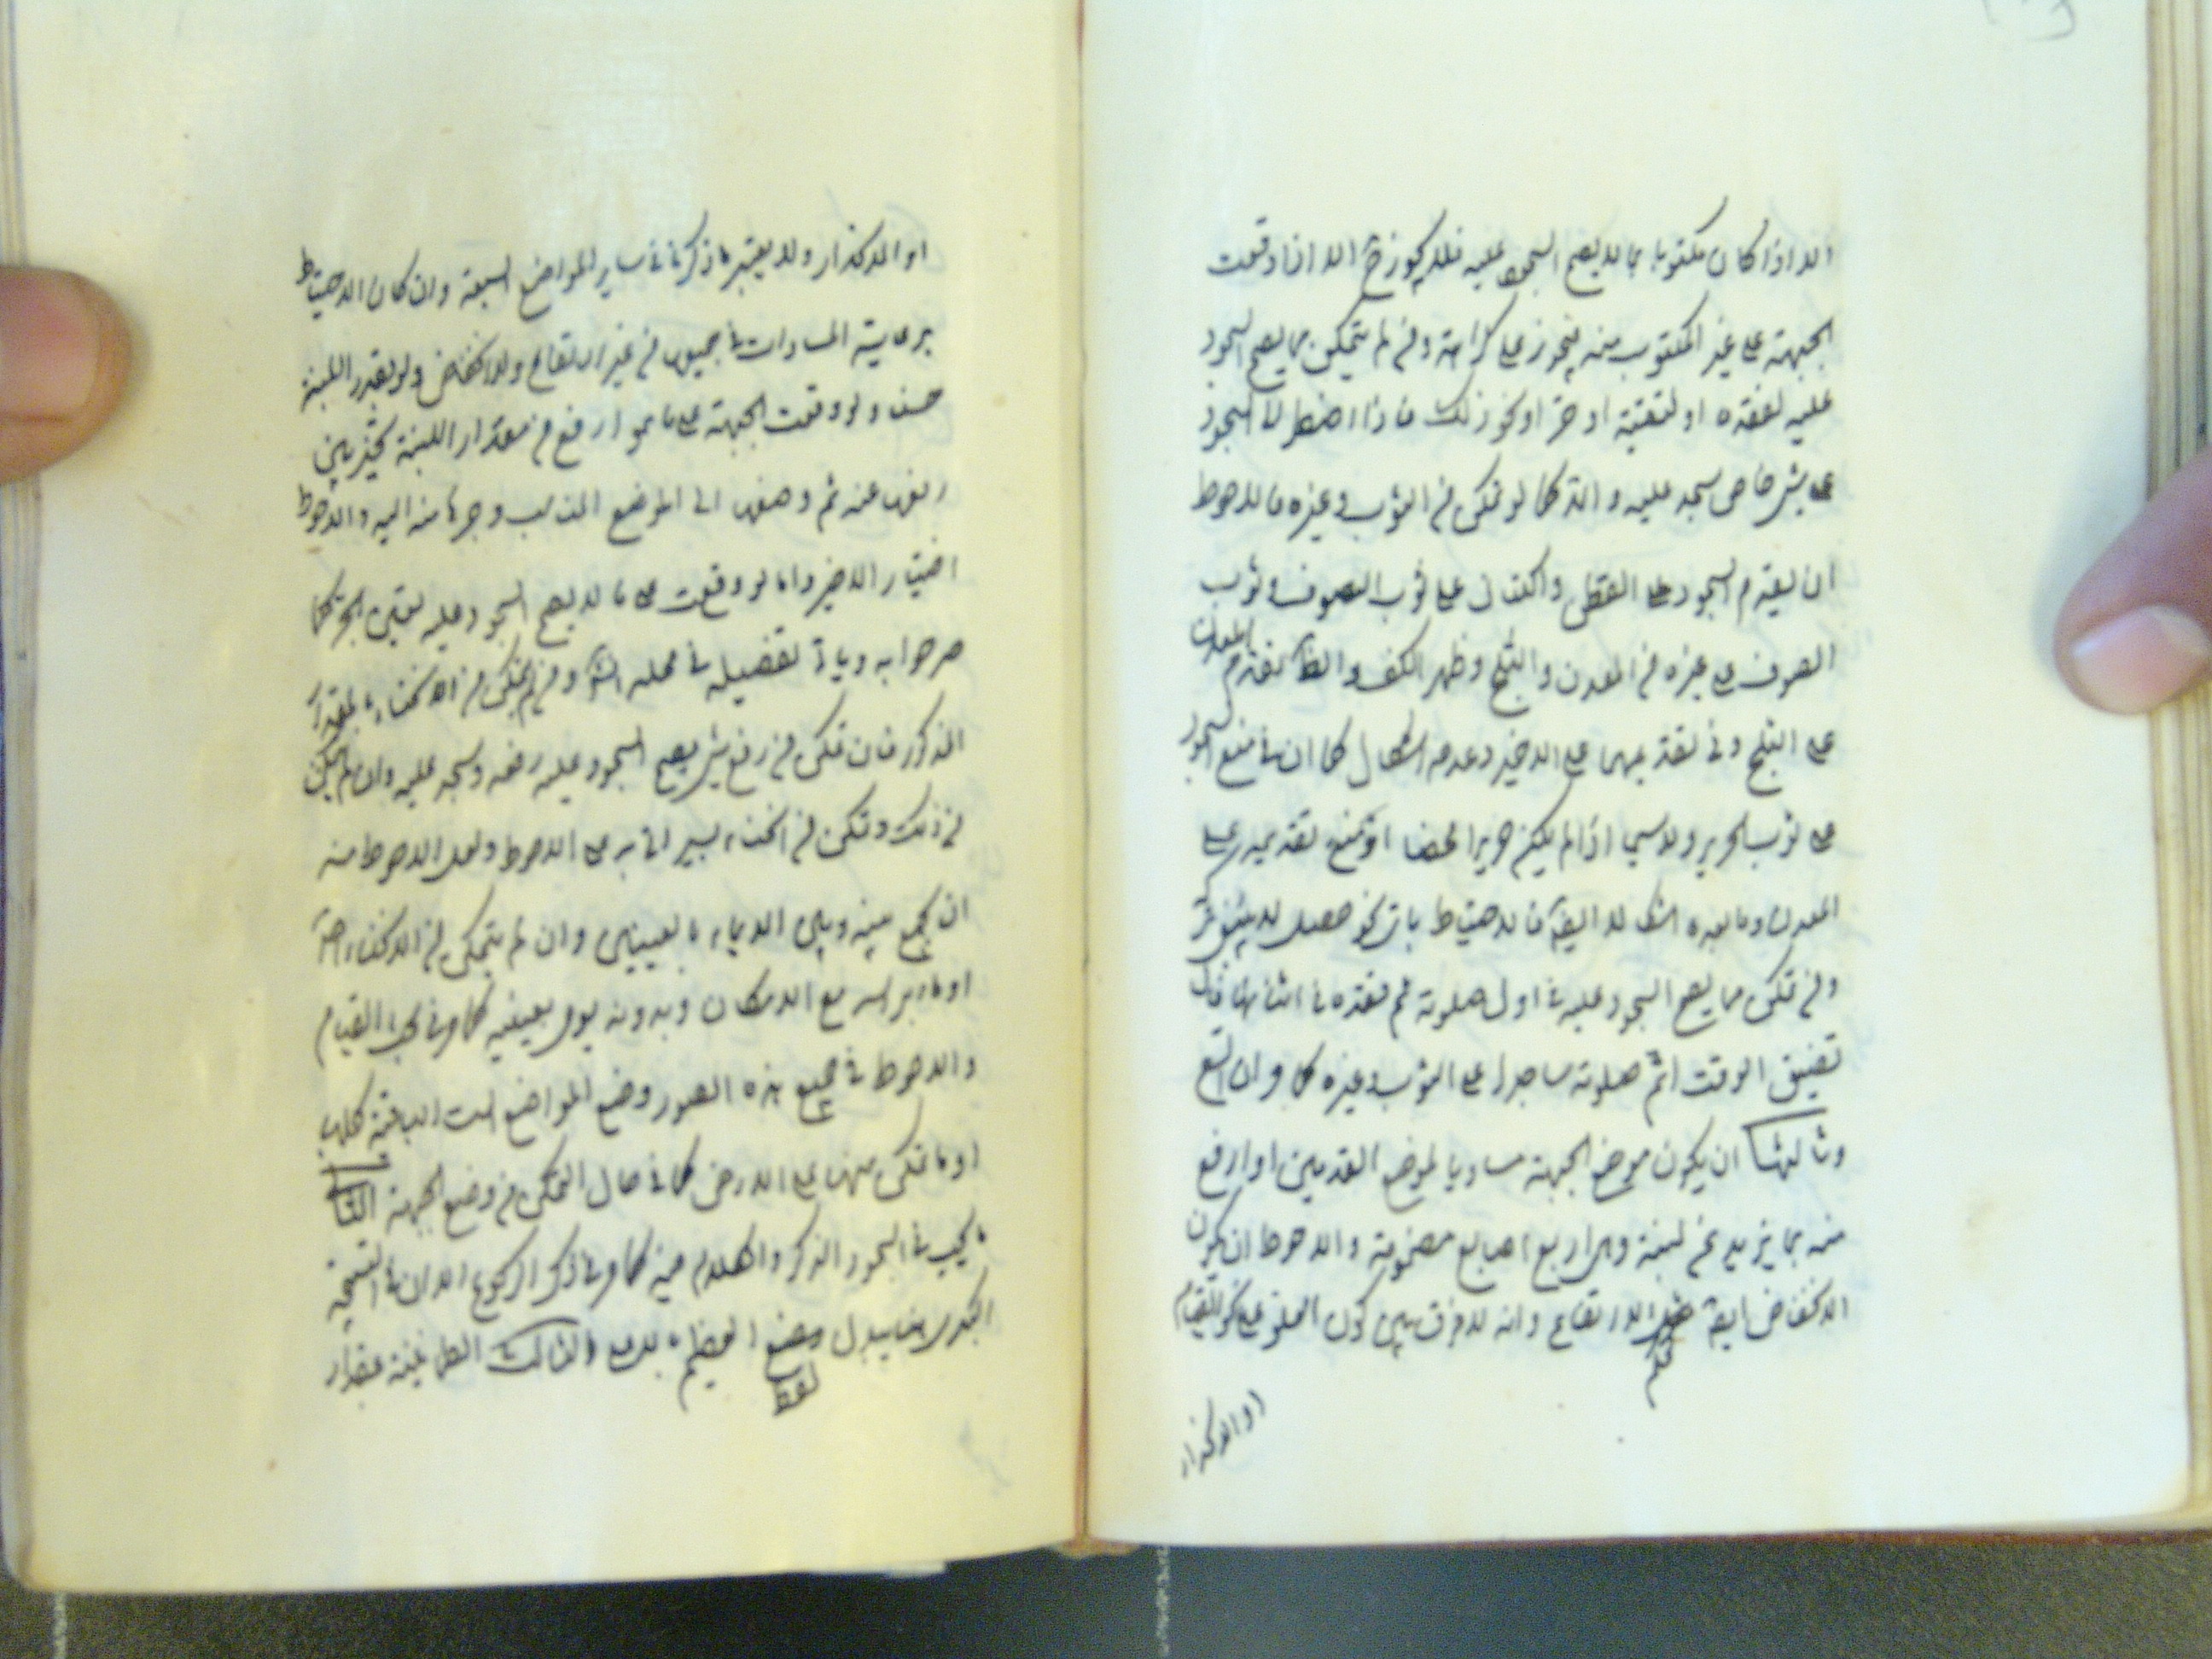 الا اذا كان مكتوبا بما لا يصح السجود عليه فلا يجوز ح الا اذا وقعت
الجبهة على غير المكتوب منه فيجوز على كراهة ومن لم يتمكن مما يصح السجود
عليه لفقده او لتقية او حر او نحو ذلك فاذا اضطر الى السجود
على شئ خاص سجد عليه والا كما لو تمكن من الثوب وغيره فالاحوط
ان يقدم السجود على القطن والكتان على ثوب الصوف وثوب
الصوف على غيره من المعدن والثلج وظهر الكف والظ تقدم المعدن
على الثلج وفى تقديمهما على الاخير وعدمه اشكال كما ان فى منع السجود
على ثوب الحرير ولا سيما اذا لم يكن حريرا محضا او منع تقديمه على
المعدن وما بعده اشكالا ايضا فالاحتياط باى نحو حصل لا ينبغى تركه
ومن تمكن مما يصح السجود عليه فى اول صلوته ثم فقده فى اثنائها فان
تضيق الوقت اتم صلوته ساجدا على الثوب وغيره كما مر وان اتسع
وثالثها ان يكون موضع الجبهة مساويا لموضع القدمين او ارفع
منه بما يزيد عن لبنة وهى اربع اصابع مضمومة والاحوط ان يكون
الانخفاض ايضا حكم الارتفاع وانه لا فرق بين كون العلو على نحو القيام
او الانحدار
او الانحدار ولا يعتبر ما ذكرنا فى ساير المواضع السبعة وان كان الاحتياط
برعاية المساوات فى جميعها من غير ارتفاع ولا انخفاض ولو بقدر اللبنة
حسنا ولو وقعت الجبهة على ما هو ارفع من مقدار اللبنة تخير بين
رفعها عنه ثم وضعها الى الموضع المناسب وجرها منه اليه والاحوط
اختيار الاخير واما لو وقعت على ما لا يصح السجود عليه تعين الجر كما
صرحوا به وياتى تفصيله فى محله انش ومن لم يتمكن من الانحناء بالمقدار
المذكور فان تمكن من رفع شئ يصح السجود عليه رفعه وسجد عليه وان لم يتمكن
من ذلك وتمكن من انحناء يسير اتى به على الاحوط ولعل الاحوط منه
ان يجمع بينه وبين الايماء بالعينين وان لم يتمكن من الانحناء اصلا
اوماء براسه مع الامكان وبدونه يومى بعينيه كما مر فى بحث القيام
والاحوط فى جميع هذه الصور وضع المواضع الست الباقية كلها
او ما تمكن منها على الارض كما فى حال التمكن من وضع الجبهة الثانى
ما يجب فى السجود الذكر والكلام فيه كما مر فى ذكر الركوع الا ان فى التسبيحة
الكبرى هنا يبدل لفظ العظيم بالاعلى والثالث الطمانينة بمقدار